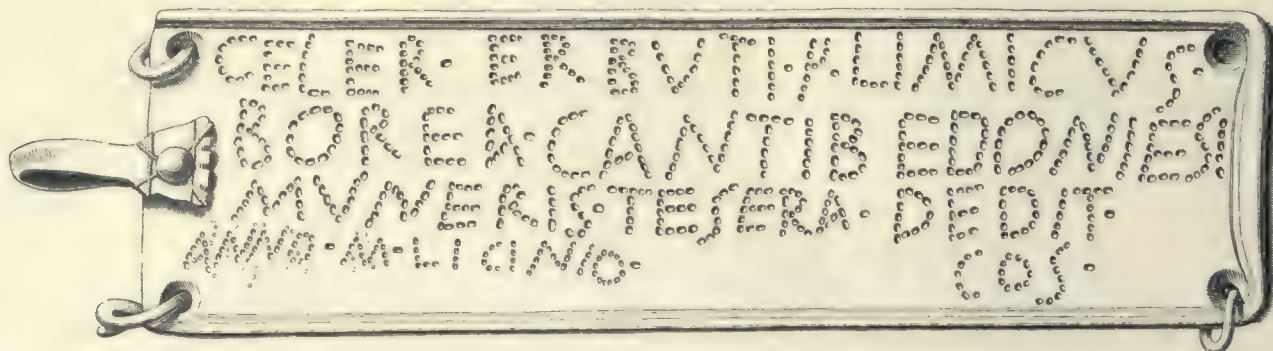 CELER· ERBVTI·F·LIMICVS
BOREA·CANTIBEDONIESI
MVNERISTESERA·DEDIT
ANNO·M·LICINIO· COS·